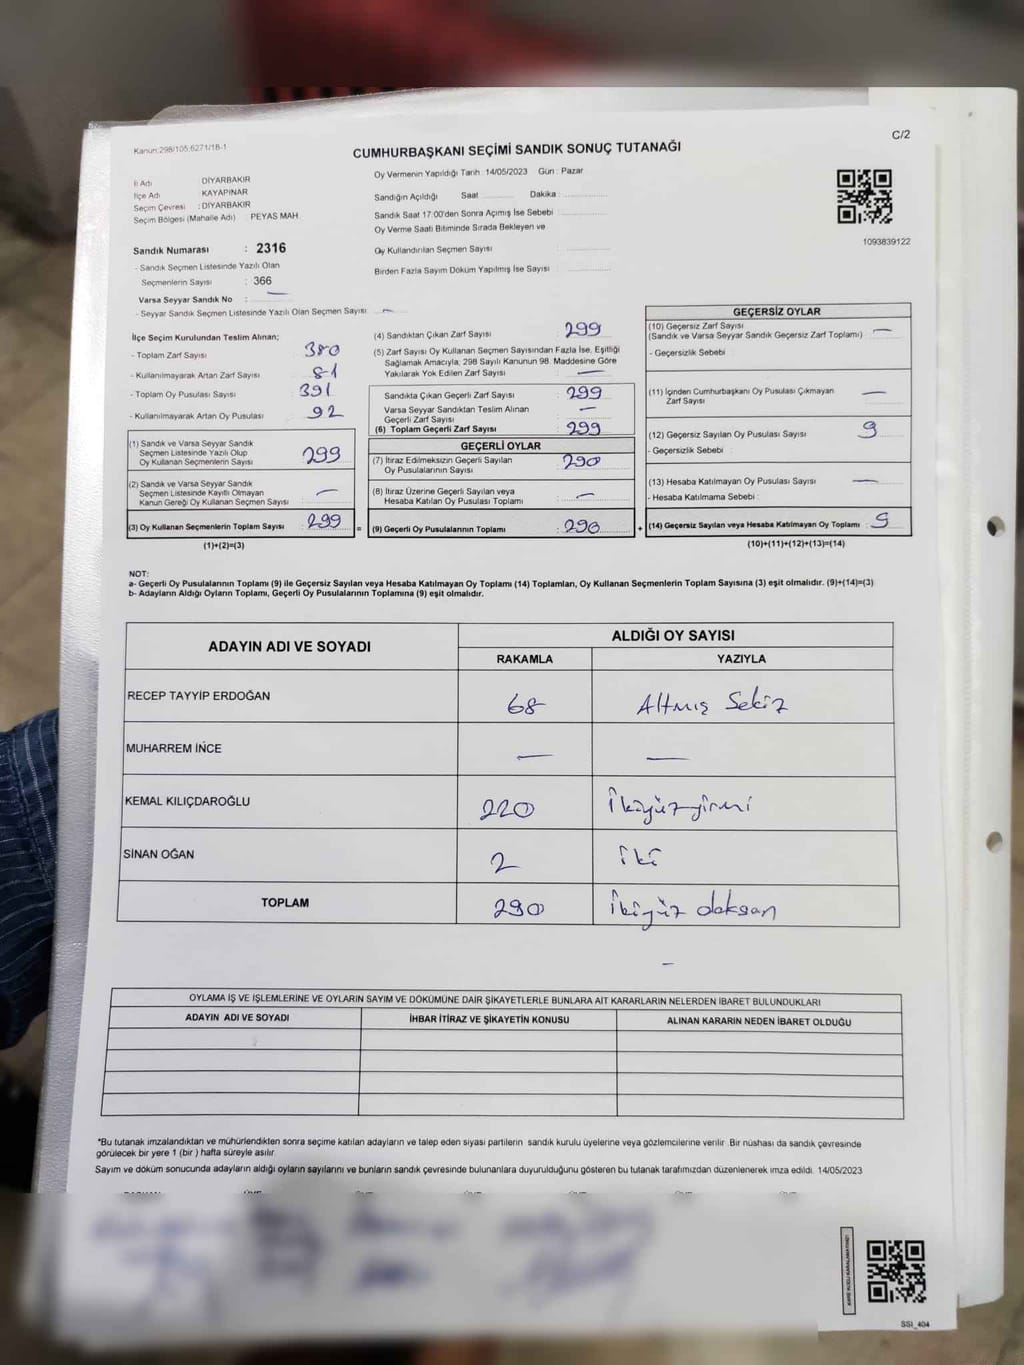 C/2
Kanun:298/105;6271/18-1
CUMHURBAŞKANI SEÇİMİ SANDIK SONUÇ TUTANAĞI
İl Adı : DİYARBAKIR
İlçe Adı : KAYAPINAR
Seçim Çevresi : DİYARBAKIR
Seçim Bölgesi (Mahalle Adı) : PEYAS MAH.
Sandık Numarası : 2316
- Sandık Seçmen Listesinde Yazılı Olan
Seçmenlerin Sayısı : 366
Varsa Seyyar Sandık No : —
- Seyyar Sandık Seçmen Listesinde Yazılı Olan Seçmen Sayısı : —
Oy Vermenin Yapıldığı Tarih : 14/05/2023 Gün : Pazar
Sandığın Açıldığı Saat : Dakika :
Sandık Saat 17:00'den Sonra Açımış İse Sebebi :
Oy Verme Saati Bitiminde Sırada Bekleyen ve
Oy Kullandırılan Seçmen Sayısı :
Birden Fazla Sayım Döküm Yapılmış İse Sayısı :
1093839122
İlçe Seçim Kurulundan Teslim Alınan;
- Toplam Zarf Sayısı : 380
- Kullanılmayarak Artan Zarf Sayısı : 81
- Toplam Oy Pusulası Sayısı : 391
- Kullanılmayarak Artan Oy Pusulası : 92
(1) Sandık ve Varsa Seyyar Sandık
Seçmen Listesinde Yazılı Olup
Oy Kullanan Seçmenlerin Sayısı : 299
(2) Sandık ve Varsa Seyyar Sandık
Seçmen Listesinde Kayıtlı Olmayan
Kanun Gereği Oy Kullanan Seçmen Sayısı : —
(3) Oy Kullanan Seçmenlerin Toplam Sayısı : 299 =
(1)+(2)=(3)
(4) Sandıktan Çıkan Zarf Sayısı : 299
(5) Zarf Sayısı Oy Kullanan Seçmen Sayısından Fazla İse, Eşitliği
Sağlamak Amacıyla; 298 Sayılı Kanunun 98. Maddesine Göre
Yakılarak Yok Edilen Zarf Sayısı : —
Sandıkta Çıkan Geçerli Zarf Sayısı : 299
Varsa Seyyar Sandıktan Teslim Alınan
Geçerli Zarf Sayısı : —
(6) Toplam Geçerli Zarf Sayısı : 299
GEÇERLİ OYLAR
(7) İtiraz Edilmeksizin Geçerli Sayılan
Oy Pusulalarının Sayısı : 290
(8) İtiraz Üzerine Geçerli Sayılan veya
Hesaba Katılan Oy Pusulası Toplamı : —
(9) Geçerli Oy Pusulalarının Toplamı : 290 +
GEÇERSİZ OYLAR
(10) Geçersiz Zarf Sayısı : —
(Sandık ve Varsa Seyyar Sandık Geçersiz Zarf Toplamı)
- Geçersizlik Sebebi :
(11) İçinden Cumhurbaşkanı Oy Pusulası Çıkmayan : —
Zarf Sayısı
(12) Geçersiz Sayılan Oy Pusulası Sayısı : 9
- Geçersizlik Sebebi :
(13) Hesaba Katılmayan Oy Pusulası Sayısı : —
- Hesaba Katılmama Sebebi :
(14) Geçersiz Sayılan veya Hesaba Katılmayan Oy Toplamı : 9
(10)+(11)+(12)+(13)=(14)
NOT:
a- Geçerli Oy Pusulalarının Toplamı (9) ile Geçersiz Sayılan veya Hesaba Katılmayan Oy Toplamı (14) Toplamları, Oy Kullanan Seçmenlerin Toplam Sayısına (3) eşit olmalıdır. (9)+(14)=(3)
b- Adayların Aldığı Oyların Toplamı, Geçerli Oy Pusulalarının Toplamına (9) eşit olmalıdır.
ADAYIN ADI VE SOYADI ALDIĞI OY SAYISI
RAKAMLA YAZIYLA
RECEP TAYYİP ERDOĞAN 68 Altmış Sekiz
MUHARREM İNCE — —
KEMAL KILIÇDAROĞLU 220 İkiyüzyirmi
SİNAN OĞAN 2 İki
TOPLAM 290 İkiyüz doksan
OYLAMA İŞ VE İŞLEMLERİNE VE OYLARIN SAYIM VE DÖKÜMÜNE DAİR ŞİKAYETLERLE BUNLARA AİT KARARLARIN NELERDEN İBARET BULUNDUKLARI
ADAYIN ADI VE SOYADI İHBAR İTİRAZ VE ŞİKAYETİN KONUSU ALINAN KARARIN NEDEN İBARET OLDUĞU
*Bu tutanak imzalandıktan ve mühürlendikten sonra seçime katılan adayların ve talep eden siyasi partilerin sandık kurulu üyelerine veya gözlemcilerine verilir. Bir nüshası da sandık çevresinde
görülecek bir yere 1 (bir ) hafta süreyle asılır.
Sayım ve döküm sonucunda adayların aldığı oyların sayılarını ve bunların sandık çevresinde bulunanlara duyurulduğunu gösteren bu tutanak tarafımızdan düzenlenerek imza edildi. 14/05/2023
KARE KODU KARALAMAYINIZ!
SSI_404